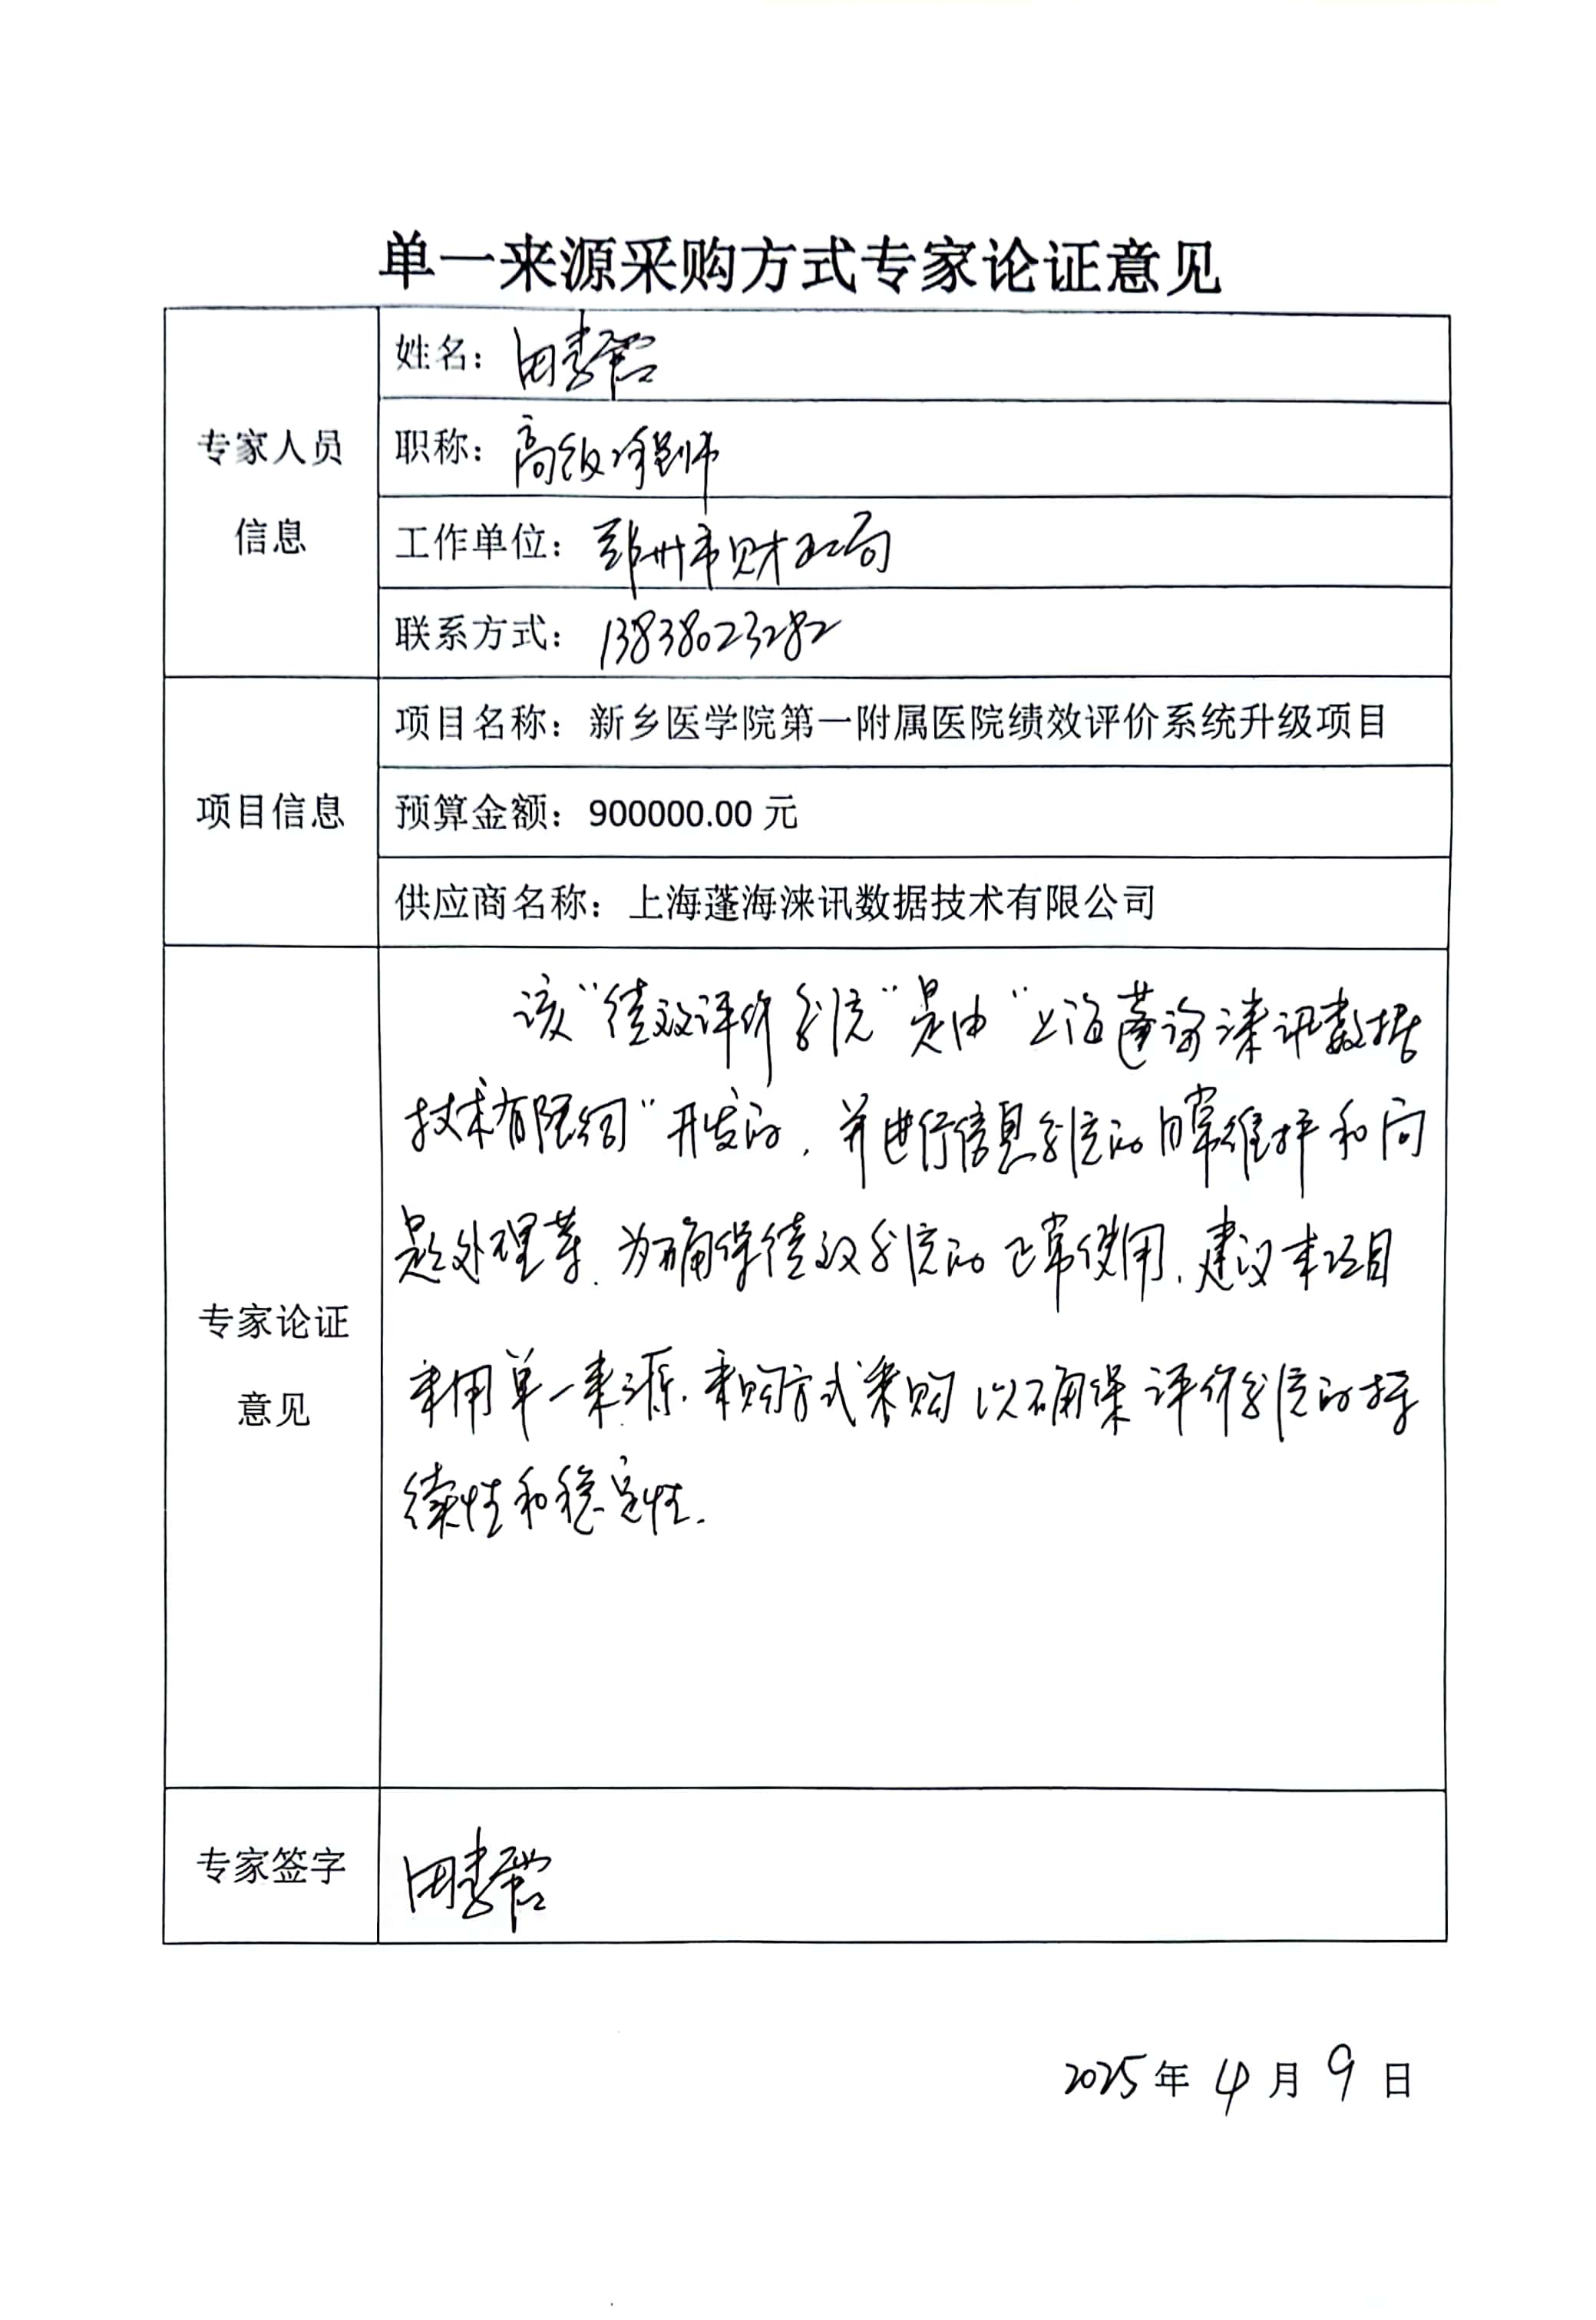 单一来源采购方式专家论证意见
专家人员
信息
姓名：田
职称：高级工程师
工作单位：郑州市财政局
联系方式：13838023282
项目信息
项目名称：新乡医学院第一附属医院绩效评价系统升级项目
预算金额：900000.00 元
供应商名称：上海蓬海涞讯数据技术有限公司
专家论证
意见
该“绩效评价系统”是由“上海蓬海涞讯数据
技术有限公司”开发的，并进行信息系统的日常维护和问
题处理等。为确保绩效系统的正常使用，建议本项目
采用单一来源采购方式采购以确保评价系统的持
续性和稳定性。
专家签字
田
2025年4月9日